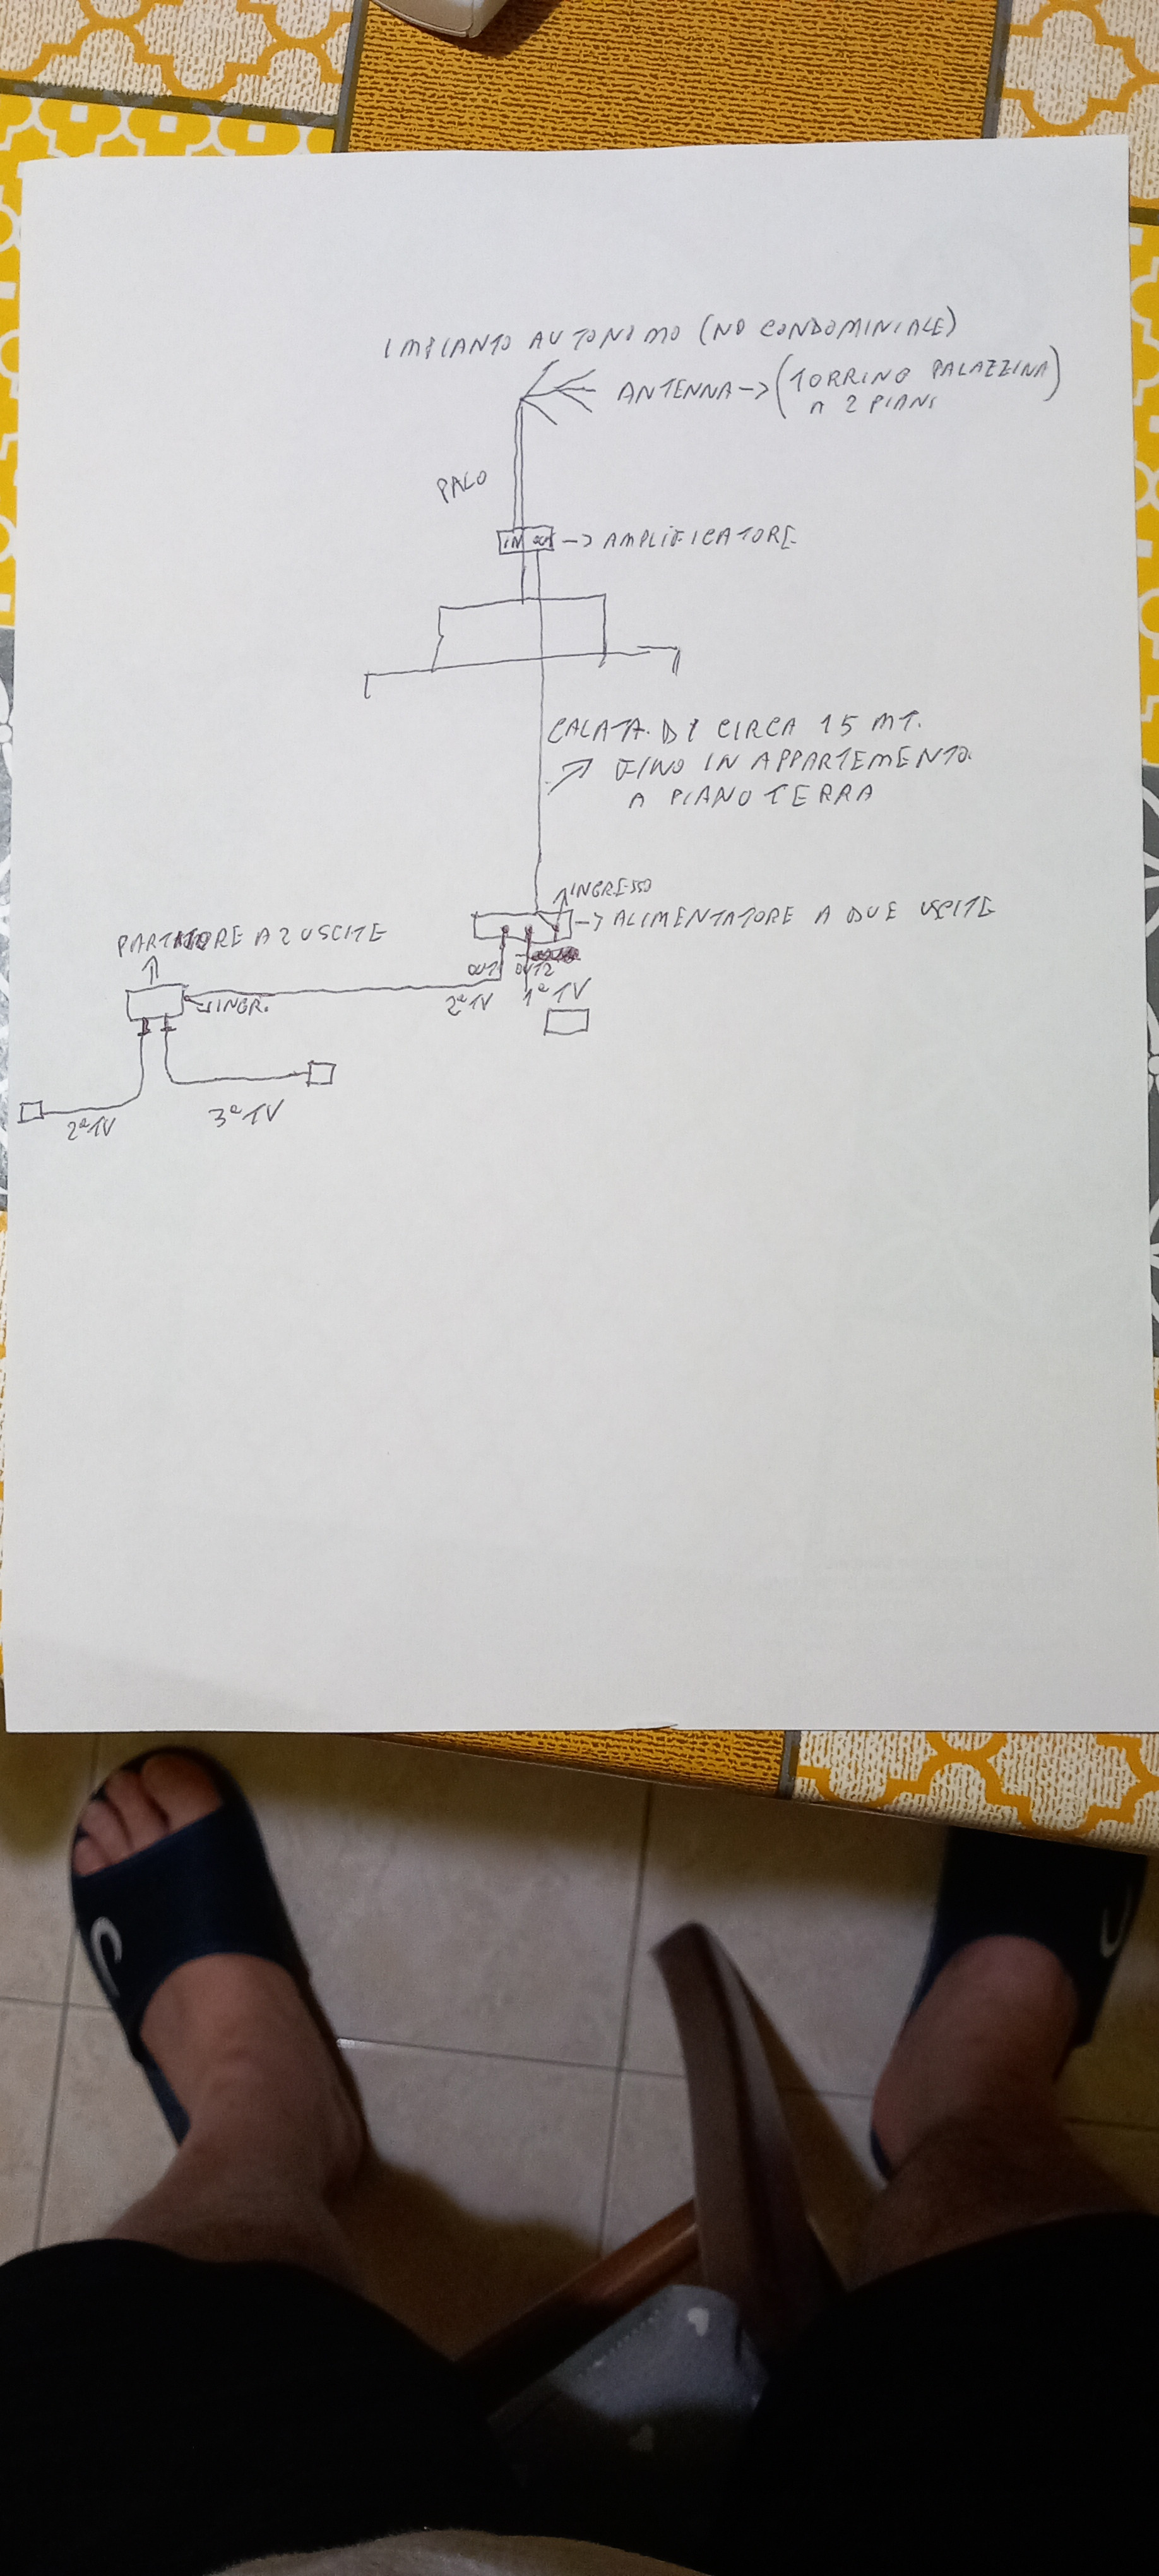 IMPIANTO AUTONOMO (NO CONDOMINIALE)
ANTENNA -> (TORRINO PALAZZINA
A 2 PIANI)
PALO
IN OUT -> AMPLIFICATORE
CALATA DI CIRCA 15 MT.
FINO IN APPARTEMENTO
A PIANO TERRA
INGRESSO
-> ALIMENTATORE A DUE USCITE
PARTITORE A 2 USCITE
OUT1 OUT2
INGR.
2ª TV 1ª TV
2ª TV 3ª TV